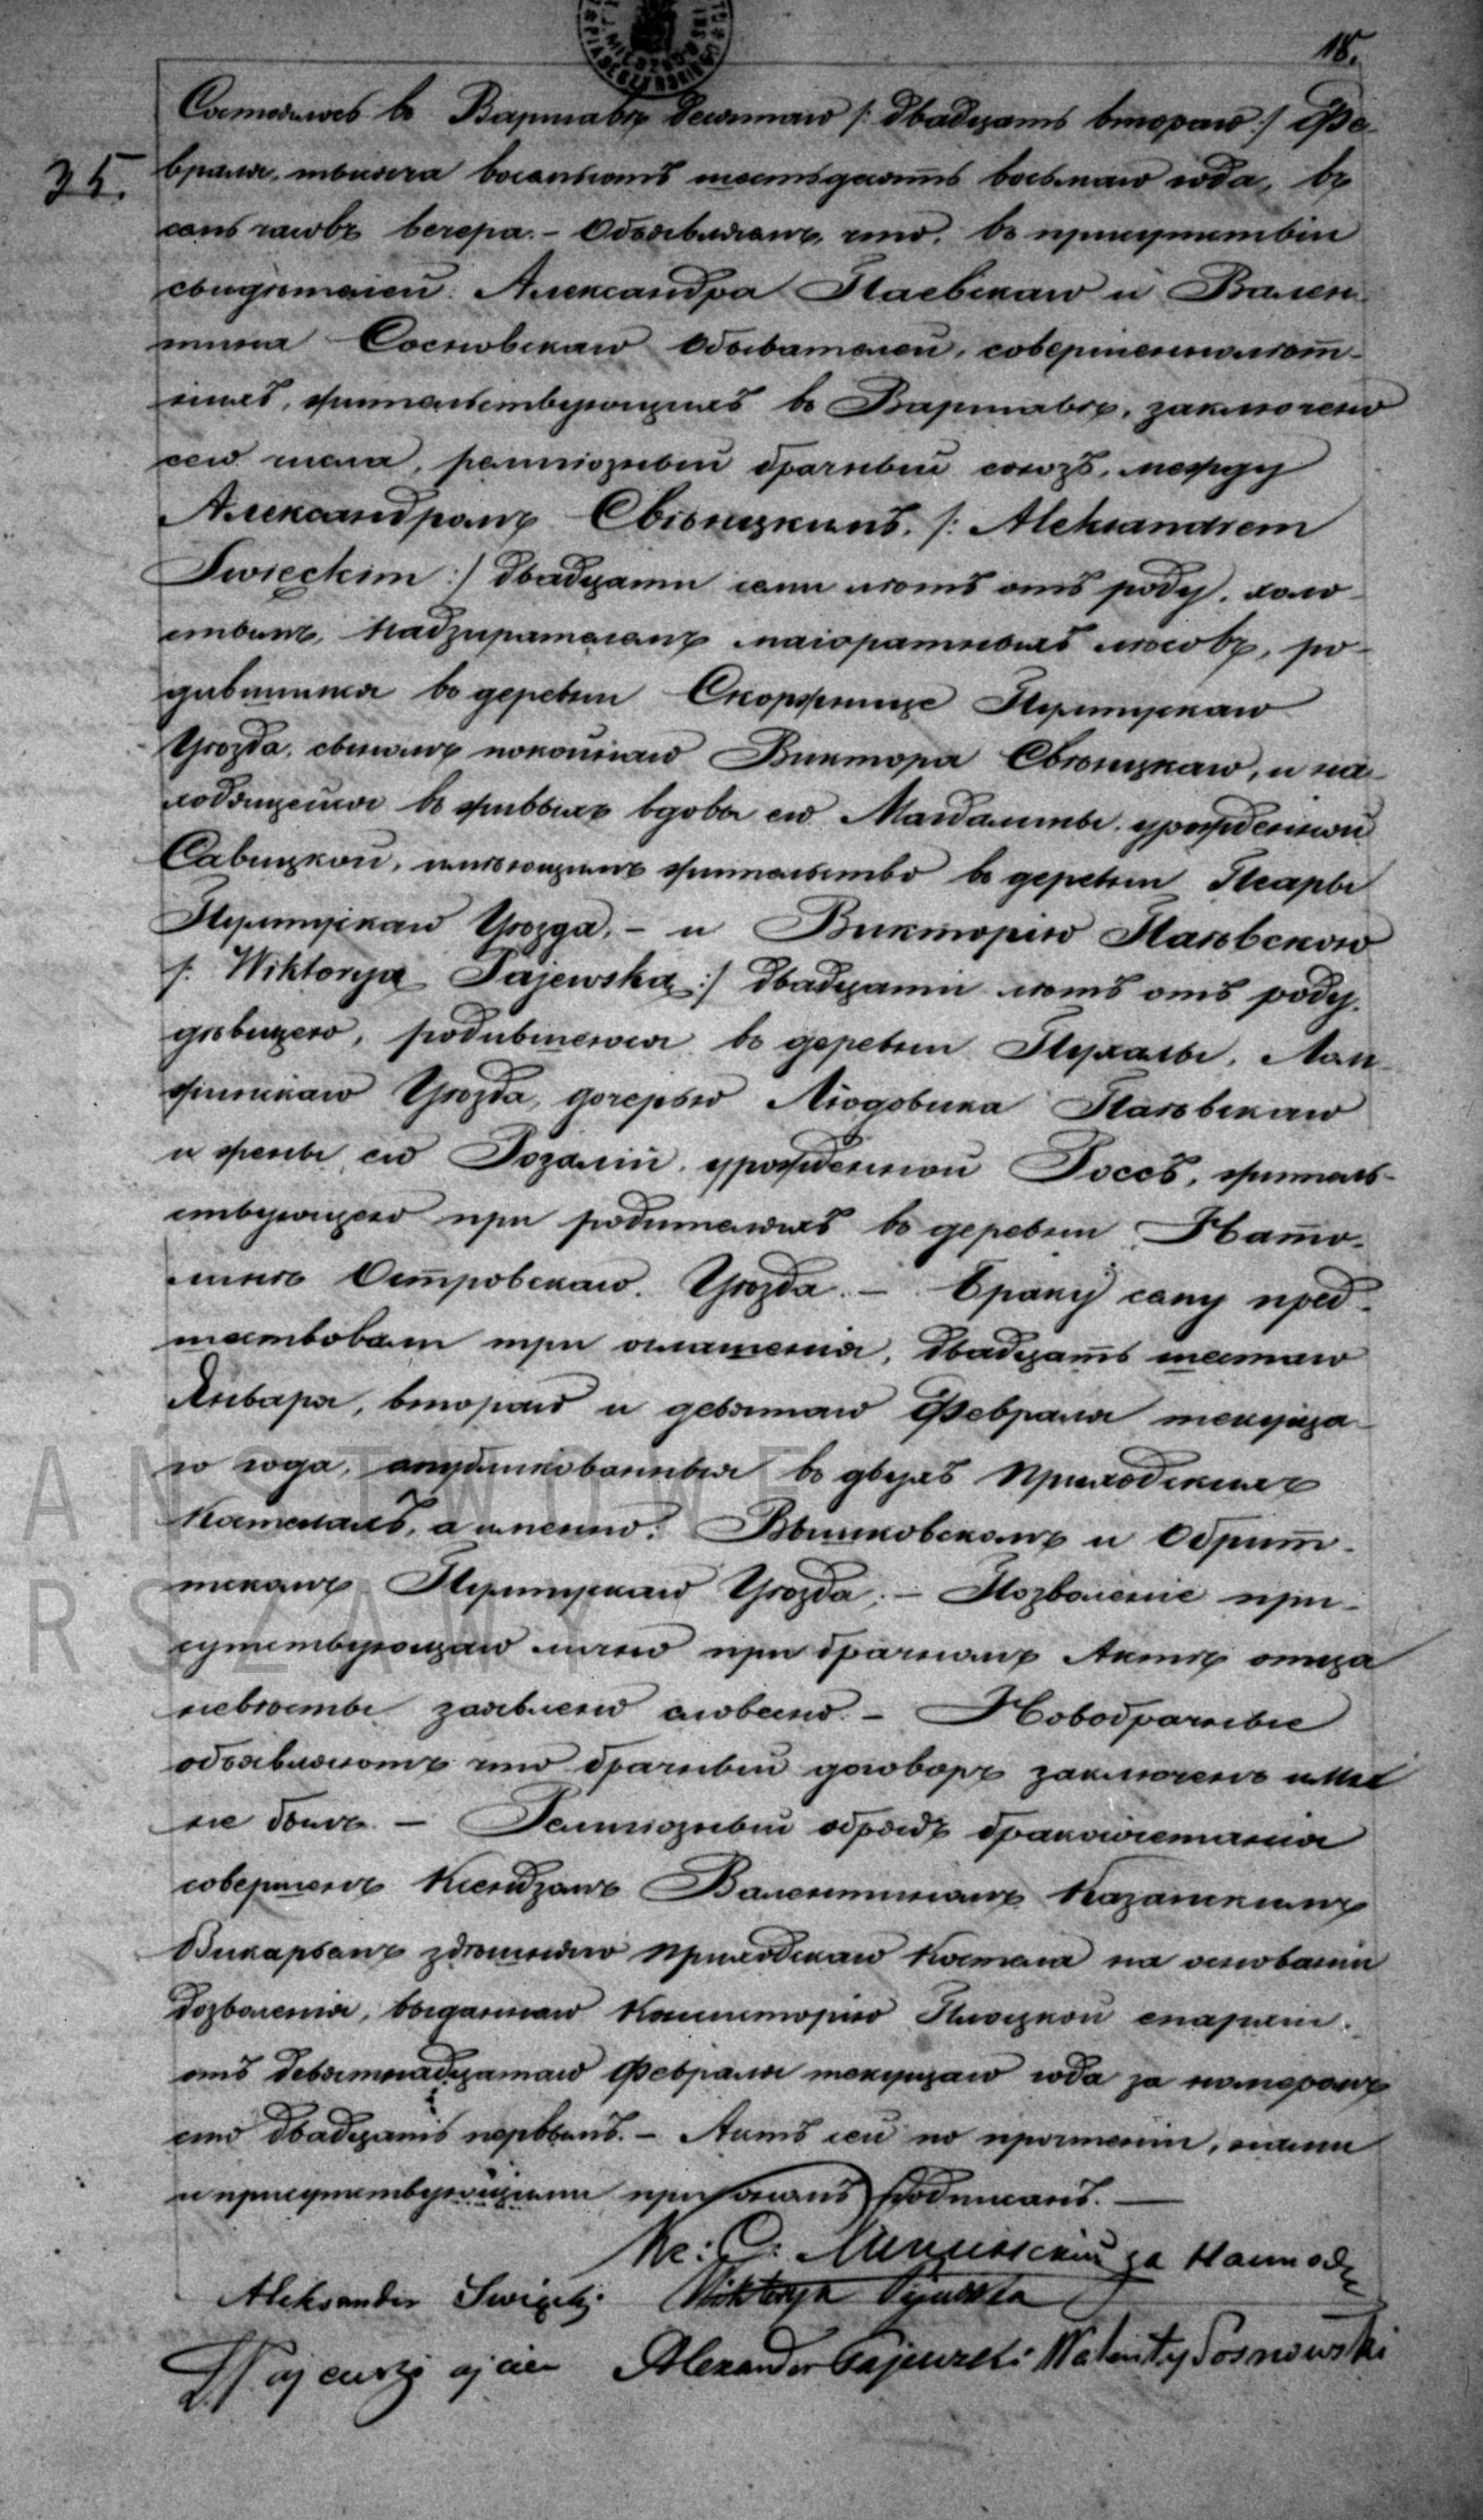 18.
35.
Состоялось въ Варшавѣ десятаго /: двадцать втораго :/ Фе-
враля, тысяча восемьсотъ шестьдесятъ восьмаго года, въ
семь часовъ вечера. – Объявляемъ, что въ присутствіи
свидѣтелей: Александра Паевскаго и Вален-
тина Сосновскаго обывателей, совершеннолѣт-
нихъ, жительствующихъ въ Варшавѣ, заключенъ
сего числа, религіозный брачный союзъ, между
Александромъ Свѣнцкимъ, /: Aleksandrem
Święckim :/ двадцати семи лѣтъ отъ роду, холо-
стымъ, надзирателемъ маіоратныхъ лѣсовъ, ро-
дившимся въ деревни Пултускаго
Уѣзда, сыномъ покойнаго Виктора Свѣнцкаго, и на-
ходящейся въ живыхъ вдовы его Магдалины, урожденной
Савицкой, имѣющимъ жительство въ деревни Псары
Пултускаго Уѣзда, – и Викторіею Паевскою
/: Wiktoryą Pajewską :/ двадцати лѣтъ отъ роду,
дѣвицею, родившеюся въ деревни Пухалы, Лом-
жинскаго Уѣзда, дочерью Людовика Паевскаго
и жены его Розаліи, урожденной Госсъ, житель-
ствующею при родителяхъ въ деревни
Островскаго Уѣзда. – Браку сему пред-
шествовали три оглашенія, двадцать шестаго
Января, втораго и девятаго Февраля текуща-
го года, опубликованныя въ двухъ Приходскихъ
Костелахъ, а именно: Вышковскомъ и Обрыт-
скомъ Пултускаго Уѣзда; – Позволеніе при-
сутствующаго лично при брачномъ Актѣ отца
невѣсты заявлено словесно. – Новобрачные
объявляютъ что брачный договоръ заключенъ ими
не былъ. – Религіозный обрядъ бракосочетанія
совершенъ Ксендзомъ Валентиномъ
Викарьемъ здѣшняго Приходскаго Костела на основаніи
дозволенія, выданнаго Консисторіею Плоцкой епархіи
отъ девятнадцатаго Февраля текущаго года за номеромъ
сто двадцать первымъ. – Актъ сей по прочтеніи, нами
и присутствующими при ономъ подписанъ. —
Кс: за Настоя.
Aleksander Święcki Wiktorya Pajewska
L Pajewski ojciec Alexander Pajewski Walenty Sosnowski
ANSTWOWE
RSZAWY